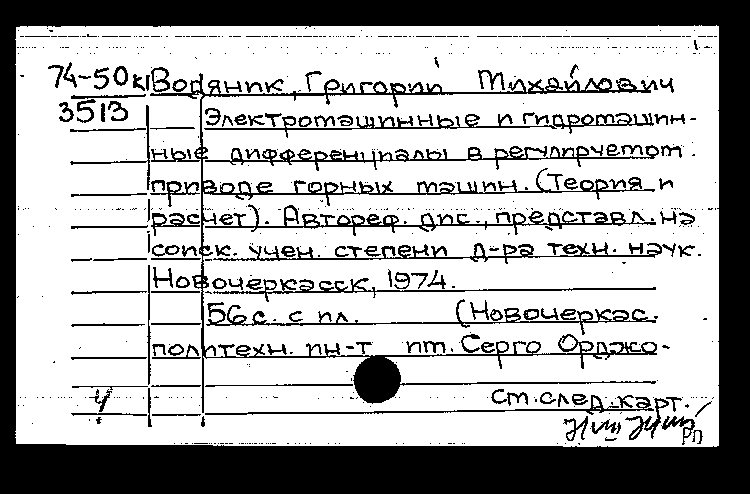 74-50к Водяник, Григорий Михайлович
3513 Электромашинные и гидромашин-
ные дифференциалы в регулируемом
приводе горных машин. (Теория и
расчет). Автореф. дис., представл. на
соиск. учен. степени д-ра техн. наук.
Новочеркасск, 1974.
56 с. с ил. (Новочеркас.
политехн. ин-т им. Серго Орджо-
См. след. карт.
РП